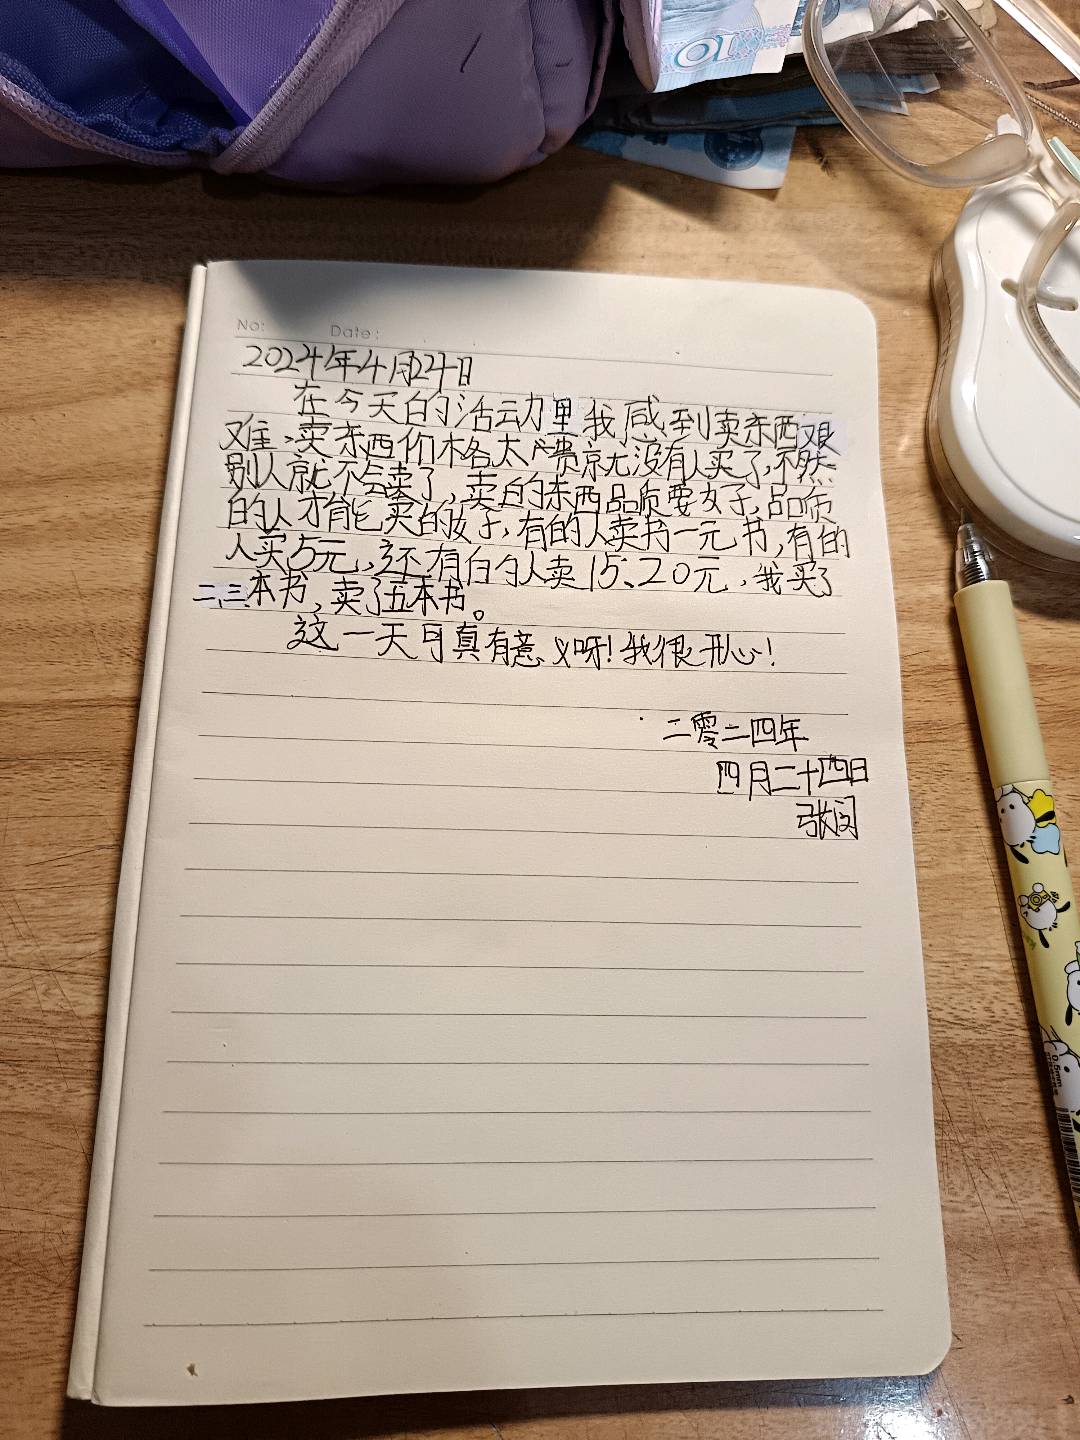 No: Date:
2024年4月24日
在今天的活动里我感到卖东西艰
难,卖东西价格太贵就没有人买了,不然
别人就不会卖了,卖的东西品质要好,品质
的人才能买的好,有的人卖书一元书,有的
人买5元,还有的人卖15、20元,我买了
二三本书,卖了五本书。
这一天可真有意义呀!我很开心!
二零二四年
四月二十四日
张闵
10
0.5mm